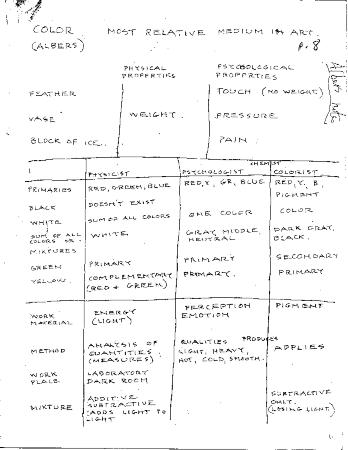 COLOR MOST RELATIVE MEDIUM IN ART.
(ALBERS) P. 8
PHYSICAL PROPERTIES PSYCHOLOGICAL PROPERTIES
FEATHER TOUCH (NO WEIGHT)
VASE WEIGHT PRESSURE
BLOCK OF ICE.. PAIN
CHEMIST
PHYSICIST PSYCHOLOGIST COLORIST
PRIMARIES RED, GREEN, BLUE RED, Y, GR, BLUE RED, Y, B,
PIGMENT
BLACK DOESN'T EXIST ONE COLOR COLOR
WHITE SUM OF ALL COLORS
SUM OF ALL COLORS OR MIXTURES WHITE GRAY, MIDDLE, NEUTRAL DARK GRAY, BLACK.
GREEN PRIMARY PRIMARY SECONDARY
YELLOW COMPLEMENTARY (RED + GREEN) PRIMARY. PRIMARY
WORK MATERIAL ENERGY (LIGHT) PERCEPTION EMOTION PIGMENT
METHOD ANALYSIS OF QUANTITIES (MEASURES) QUALITIES PRODUCES LIGHT, HEAVY, HOT, COLD, SMOOTH. APPLIES
WORK PLACE LABORATORY DARK ROOM
MIXTURE ADDITIVE SUBTRACTIVE (ADDS LIGHT TO LIGHT SUBTRACTIVE ONLY. (LOSING LIGHT)